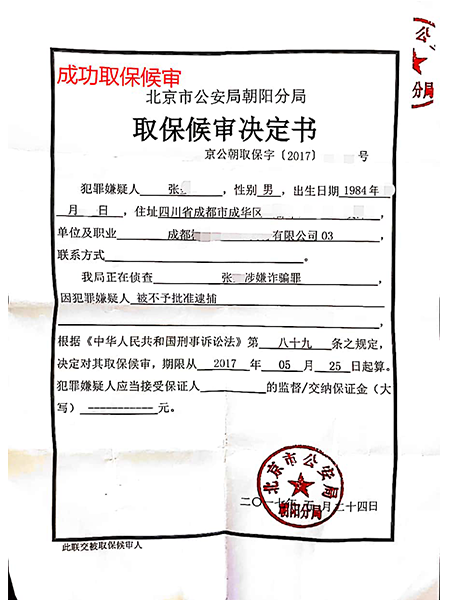 成功取保候审
北京市公安局朝阳分局
取保候审决定书
京公朝取保字〔2017〕 号
犯罪嫌疑人 张 ，性别 男 ，出生日期 1984 年
月 日，住址四川省成都市成华区
单位及职业 成都 有限公司 03 ，
联系方式 。
我局正在侦查 张 涉嫌诈骗罪
因犯罪嫌疑人 被不予批准逮捕
，
根据《中华人民共和国刑事诉讼法》第 八十九 条之规定，
决定对其取保候审，期限从 2017 年 05 月 25 日起算。
犯罪嫌疑人应当接受保证人 的监督/交纳保证金（大
写）----------- 元。
北京市公安局
朝阳分局
二〇一七年五月二十四日
此联交被取保候审人
公
分局